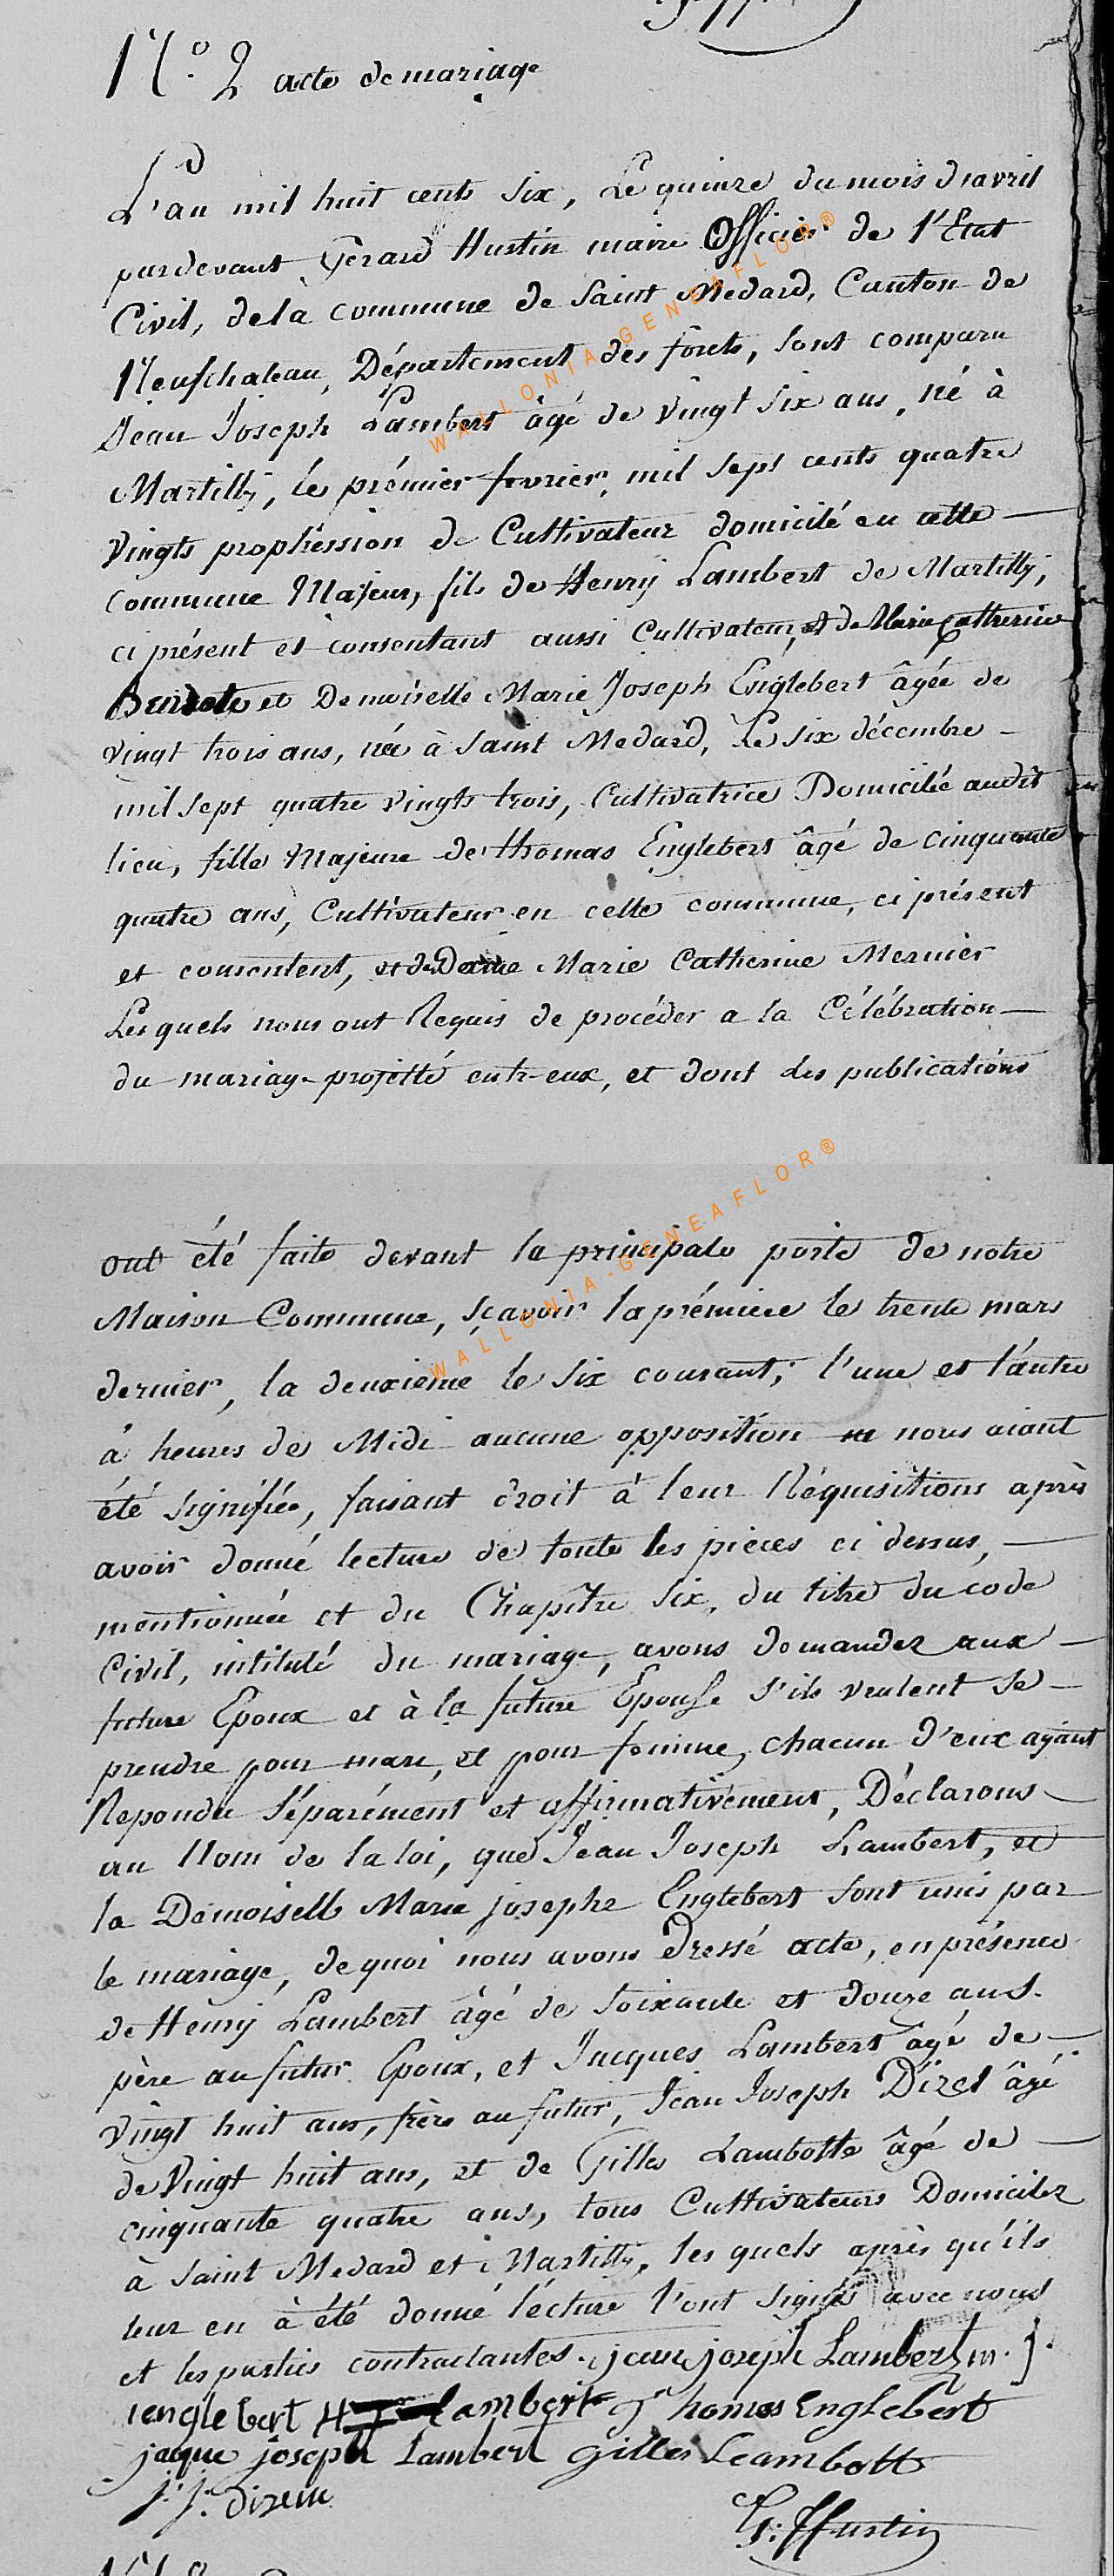 N.o 2 acte de mariage
L'an mil huit cents six, Le quinze du mois d'avril
pardevant Gerard Hustin maire Officier de l'Etat
Civil, dela commune de Saint Medard, Canton de
Neufchateau, Département des forets, sont comparu
Jean Joseph Lambert âgé de vingt six ans, né à
Martilly, le prémier fevrier, mil sept cents quatre
vingts prophession de Cultivateur domicilé en cette
commune Majeur, fils de Henry Lambert de Martilly,
ci présent et consentant aussi Cultivateur, et de Marie Catherine
et Demoiselle Marie Joseph Englebert âgée de
vingt trois ans, née à Saint Medard, Le six décembre
mil sept quatre vingts trois, Cultivatrice Domicilée audit
lieu, fille Majeure de thomas Englebert âgé de cinquante
quatre ans, Cultivateur en cette commune, ci présent
et consentent, et de Dame Marie Catherine Mernier
Lesquels nous ont Requis de procéder a la Célébration
du mariage projetté entr-eux, et dont les publications
ont été faite devant la principale porte de notre
Maison Commune, sçavoir la prémiere le trente mars
dernier, la deuxieme le six courant; l'une et l'autre
à heures de Midi aucune opposition nous aiant
été signifiée, faisant droit à leur Réquisitions après
avoir donné lecture de toute les pièces ci dessus,
mentionnée et du Chapitre Six, du titre du code
Civil, intitulé du mariage, avons demandez aux
future Epoux et à la future Epouse s'ils veulent se
prendre pour mari, et pour femme, chacun d'eux ayant
Repondu Séparément et affirmativement, Déclarons
au Nom de la loi, que Jean Joseph Lambert, et
la Demoiselle Marie josephe Englebert sont unis par
le mariage, de quoi nous avons Dressé acte, en présence
de Henry Lambert âgé de soixante et douze ans.
père au futur Epoux, et Jacques Lambert âgé de
vingt huit ans, frère au futur, Jean Joseph Dizet âgé
de Vingt huit ans, et de Gilles Lambotte âgé de
cinquante quatre ans, tous Cultivateurs Domicilez
à Saint Medard et Martilly, les quels après qu'ils
leur en à été donné lécture l'ont signés avec nous
et les parties contractantes. jean joseph Lambert m. j.
englebert H Lambert Thomas Englebert
jaque joseph Lambert gilles Leambott
j. j. dizem
G: Hustin
WALLONIA-GENEAFLOR®
WALLONIA-GENEAFLOR®